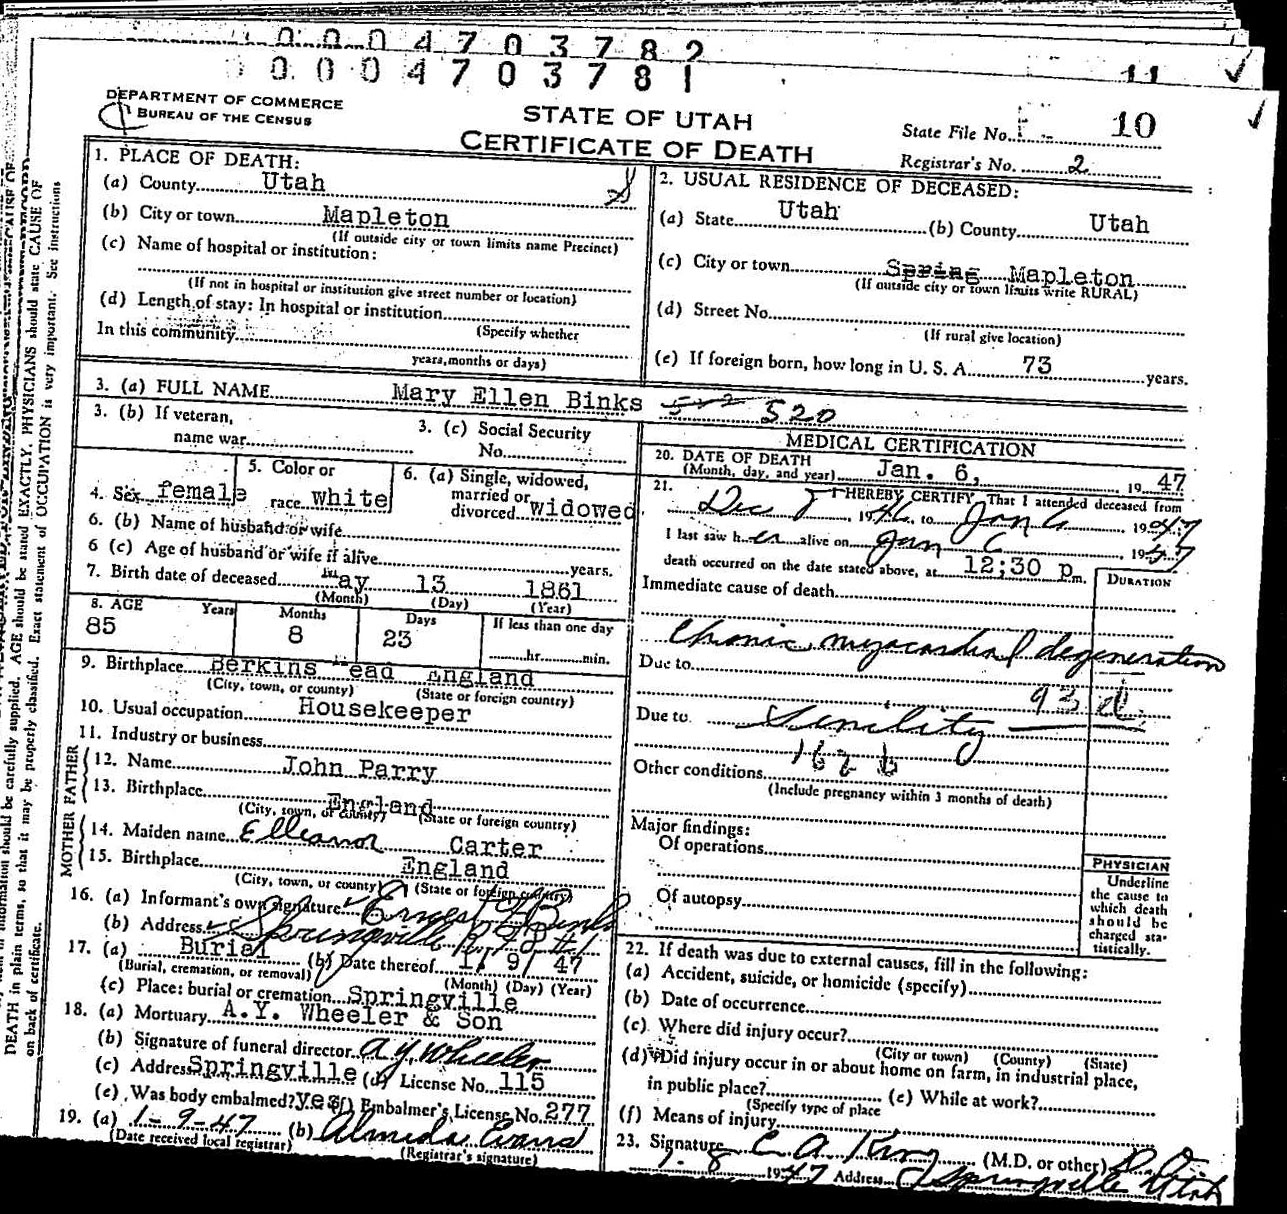 0004703782
0004703781
11
DEPARTMENT OF COMMERCE
BUREAU OF THE CENSUS
STATE OF UTAH
CERTIFICATE OF DEATH
State File No. 10
Registrar's No. 2
1. PLACE OF DEATH:
(a) County Utah
(b) City or town Mapleton
(If outside city or town limits name Precinct)
(c) Name of hospital or institution:
(If not in hospital or institution give street number or location)
(d) Length of stay: In hospital or institution
(Specify whether
In this community
years, months or days)
2. USUAL RESIDENCE OF DECEASED:
(a) State Utah (b) County Utah
(c) City or town Spring Mapleton
(If outside city or town limits write RURAL)
(d) Street No.
(If rural give location)
(e) If foreign born, how long in U. S. A. 73 years.
3. (a) FULL NAME Mary Ellen Binks 520
3. (b) If veteran,
name war
3. (c) Social Security
No.
4. Sex female
5. Color or
race white
6. (a) Single, widowed,
married or
divorced widowed
6. (b) Name of husband or wife
6 (c) Age of husband or wife if alive years.
7. Birth date of deceased May 13 1861
(Month) (Day) (Year)
8. AGE Years Months Days If less than one day
85 8 23 hr. min.
9. Birthplace Berkins Head England
(City, town, or county) (State or foreign country)
10. Usual occupation Housekeeper
11. Industry or business
FATHER
12. Name John Parry
13. Birthplace England
(City, town, or county) (State or foreign country)
MOTHER
14. Maiden name Elleanor Carter
15. Birthplace England
(City, town, or county) (State or foreign country)
16. (a) Informant's own signature Ernest Binks
(b) Address Springville RFD #1
17. (a) Burial (b) Date thereof 1/ 9/ 47
(Burial, cremation, or removal) (Month) (Day) (Year)
(c) Place: burial or cremation Springville
18. (a) Mortuary A.Y. Wheeler & Son
(b) Signature of funeral director A Y Wheeler
(c) Address Springville (d) License No. 115
(e) Was body embalmed? yes (f) Embalmer's License No. 277
19. (a) 1-9-47 (b) Almeda Evans
(Date received local registrar) (Registrar's signature)
MEDICAL CERTIFICATION
20. DATE OF DEATH
(Month, day, and year) Jan. 6, 19 47
21. I HEREBY CERTIFY, That I attended deceased from
Dec 1946, to Jan 6 1947
I last saw her alive on Jan 6, 1947
death occurred on the date stated above, at 12:30 p m.
DURATION
Immediate cause of death
Chronic myocardial degeneration
Due to
93 d
Due to Senility
162 b
Other conditions
(Include pregnancy within 3 months of death)
Major findings:
Of operations
Of autopsy
PHYSICIAN
Underline
the cause to
which death
should be
charged sta-
tistically.
22. If death was due to external causes, fill in the following:
(a) Accident, suicide, or homicide (specify)
(b) Date of occurrence
(c) Where did injury occur?
(City or town) (County) (State)
(d) Did injury occur in or about home on farm, in industrial place,
in public place? (e) While at work?
(Specify type of place
(f) Means of injury
23. Signature C A King (M.D. or other) D.O.
1. 8 1947 Address Springville Utah
PHYSICIANS should state CAUSE OF
DEATH in plain terms, so that it may be properly classified. Exact statement of OCCUPATION is very important. See instructions
on back of certificate.